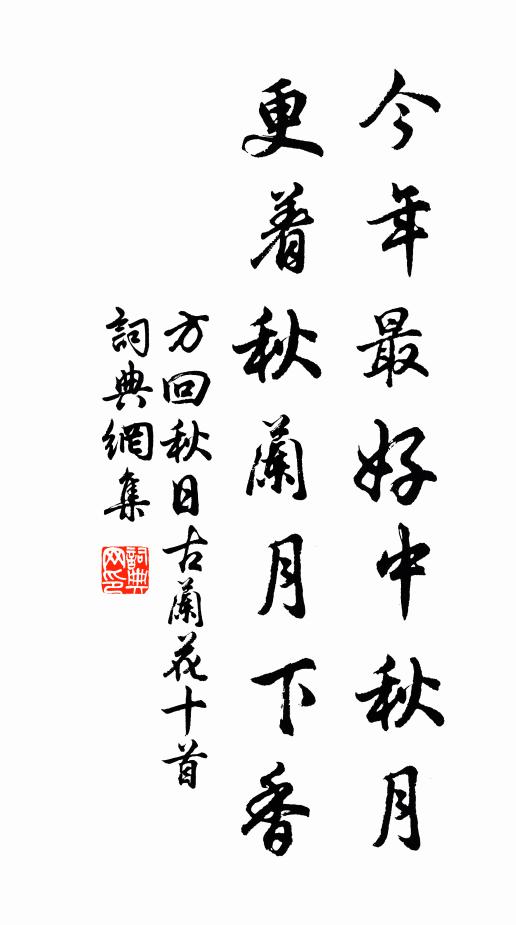 今年最好中秋月
更着秋蘭月下香
方回秋日古蘭花十首
詞典網集
詞典网印